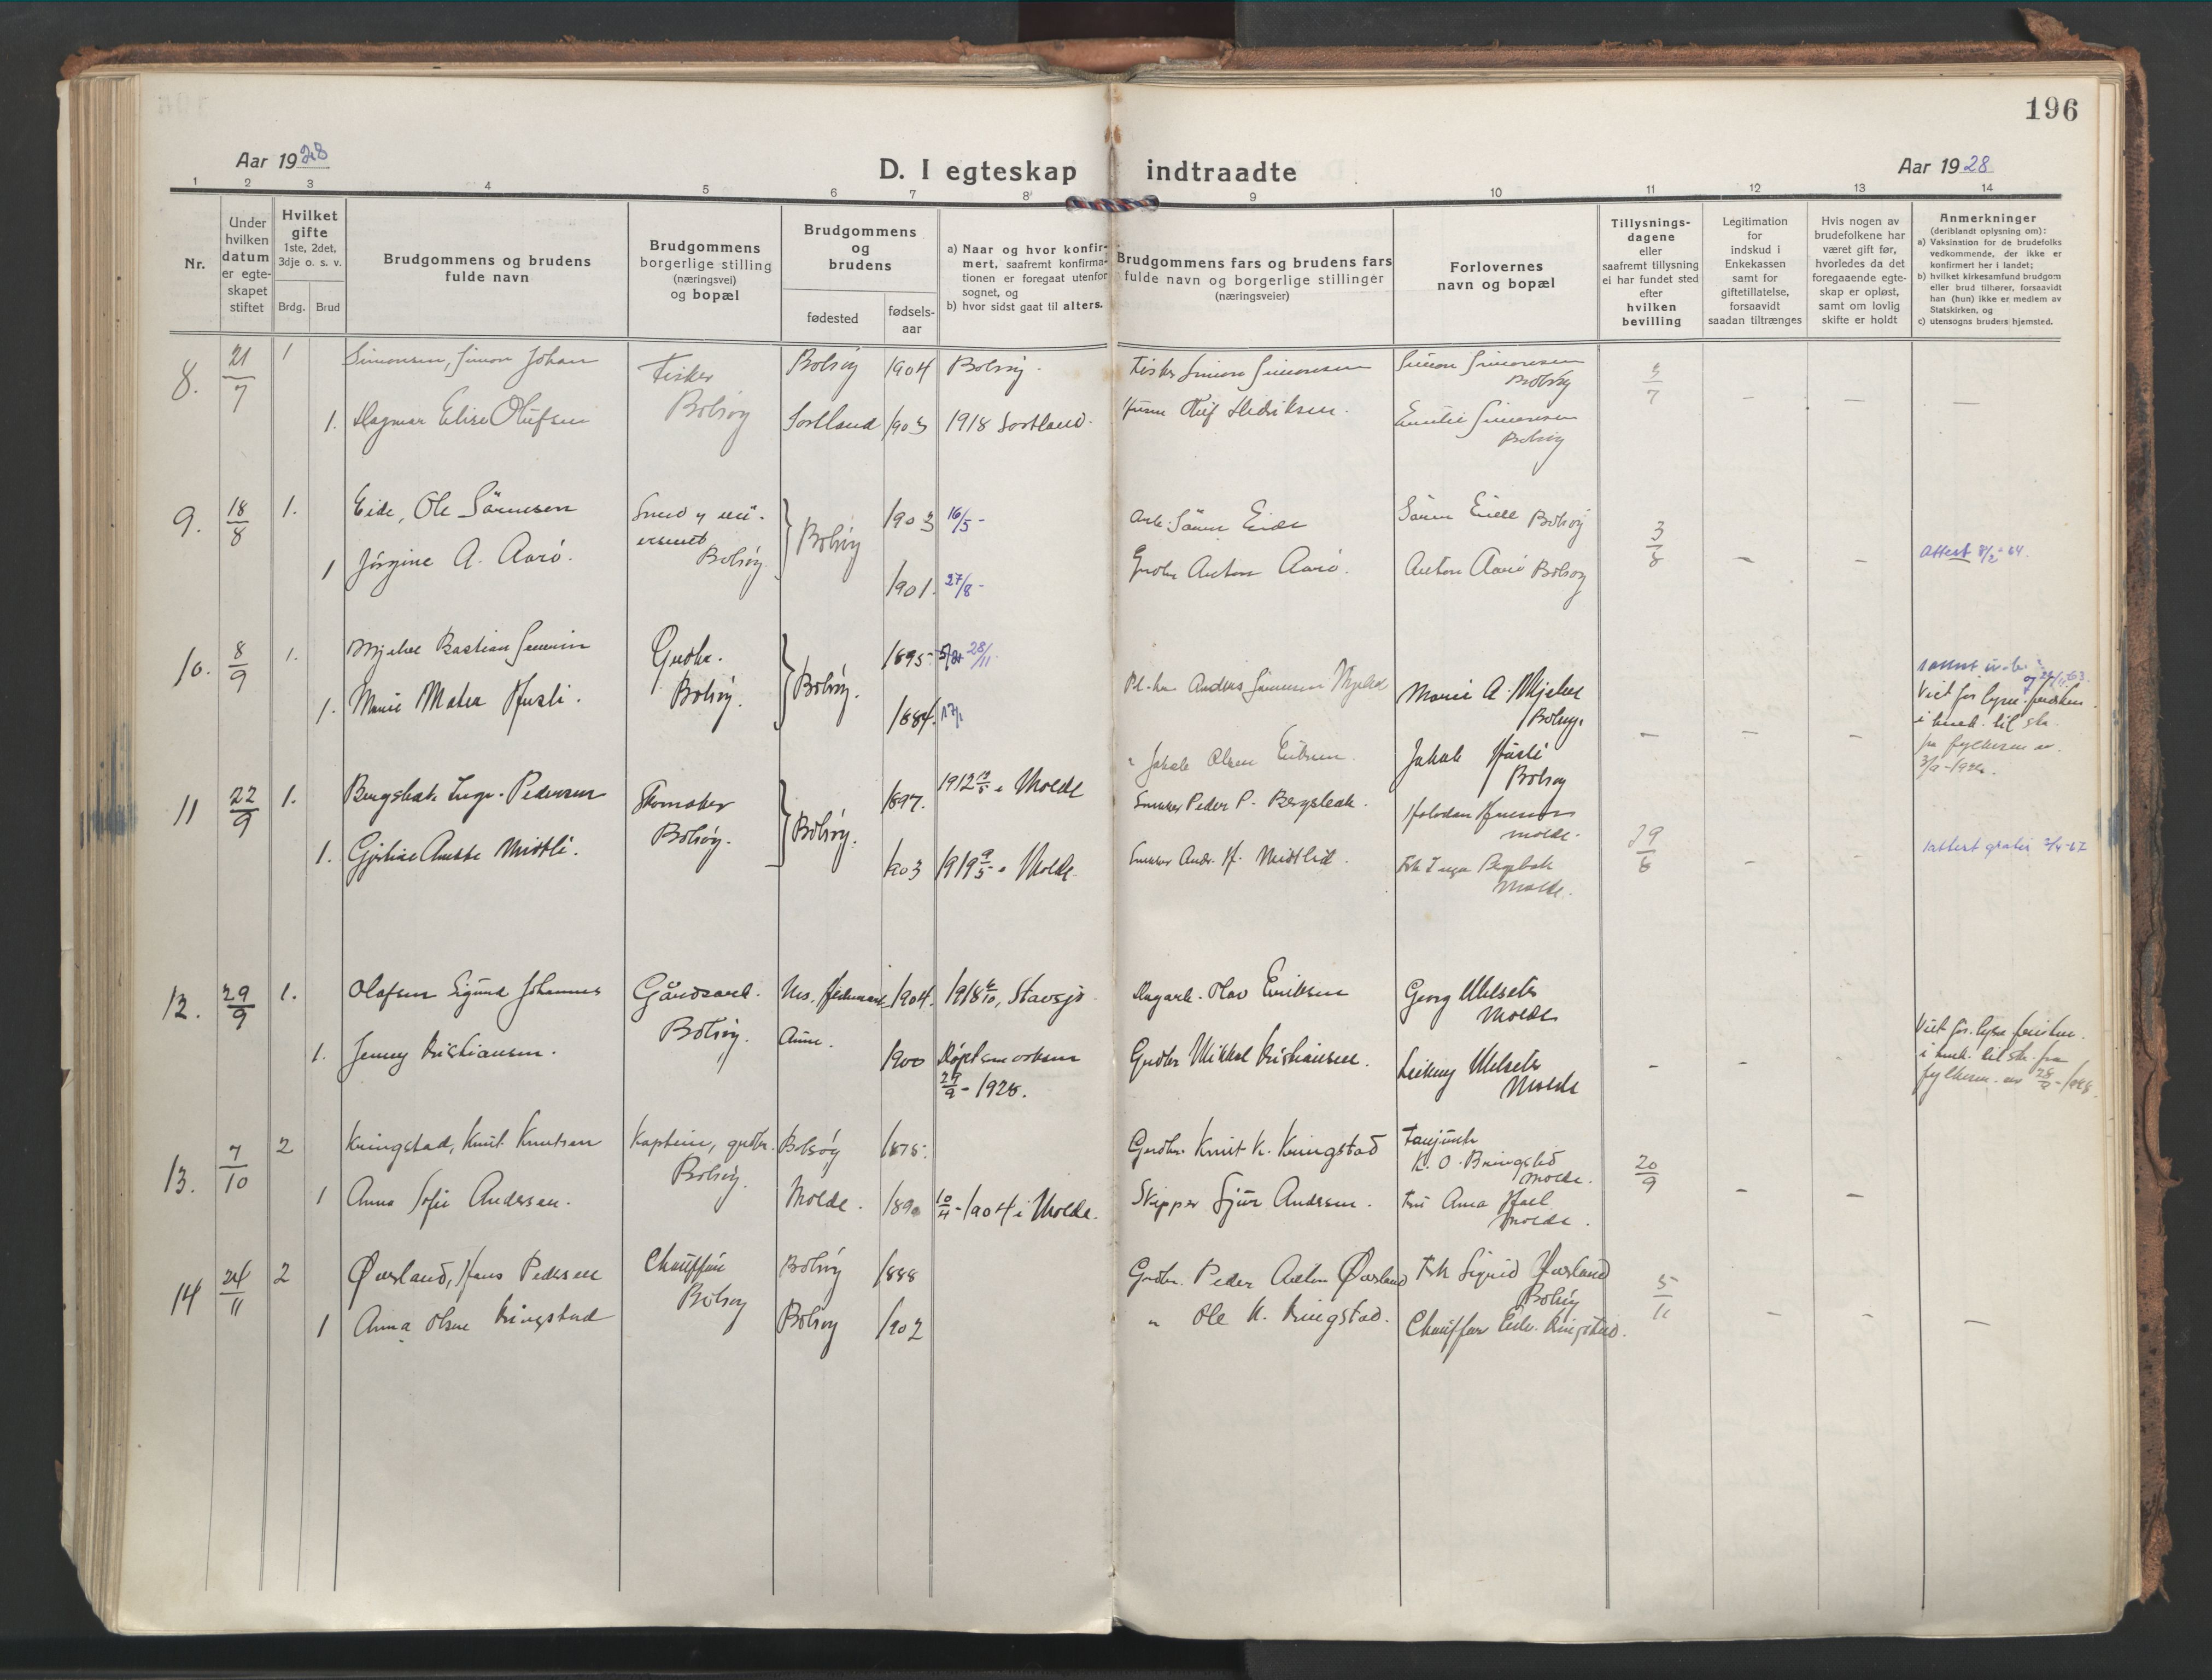 196
Aar 1928
D. I egteskap indtraadte
Aar 1928
1 2 3 4 5 6 7 8 9 10 11 12 13 14
Nr.
Under
hvilken
datum
er egte-
skapet
stiftet
Hvilket
gifte
1ste, 2det,
3dje o. s. v.
Brdg. Brud
Brudgommens og brudens
fulde navn
Brudgommens
borgerlige stilling
(næringsvei)
og bopæl
Brudgommens
og
brudens
fødested
fødsels-
aar
a) Naar og hvor konfir-
mert, saafremt konfirma-
tionen er foregaat utenfor
sognet, og
b) hvor sidst gaat til alters.
Brudgommens fars og brudens fars
fulde navn og borgerlige stillinger
(næringsveier)
Forlovernes
navn og bopæl
Tillysnings-
dagene
eller
saafremt tillysning
ei har fundet sted
efter
hvilken
bevilling
Legitimation
for
indskud i
Enkekassen
samt for
giftetillatelse,
forsaavidt
saadan tiltrænges
Hvis nogen av
brudefolkene har
været gift før,
hvorledes da det
foregaaende egte-
skap er opløst,
samt om lovlig
skifte er holdt
Anmerkninger
(deriblandt oplysning om):
a) Vaksination for de brudefolks
vedkommende, der ikke er
konfirmert her i landet;
b) hvilket kirkesamfund brudgom
eller brud tilhører, forsaavidt
han (hun) ikke er medlem av
Statskirken, og
c) utensogns bruders hjemsted.
8. 21/7 1 Simonsen, Simon Johan Fisker Bolsøy 1904 Bolsøy. Fisker Simon Simonsen Simon Simonsen
Bolsøy Bolsøy 5/7
1. Dagmar Elise Olufsen Sortland 1903 1918 Sortland. Oluf Hedriksen. Emilie Simonsen
Bolsøy
9. 18/8 1. Eide, Ole Sörensen Smed Bolsøy 1903 16/5 - Arb. Sören Eide Sören Eide Bolsøy 3/8
Bolsøy.
1 Jørgine A. Aarö. 1901. 27/8 - Grdbr Anton Aarö. Anton Aarö Bolsøy Attest 8/2-64.
10. 8/9 1. Mjelve Bastian Grdbr. Bolsøy. 1895. 28/11 Anders Mjelve Marie A. Mjelve
Bolsøy. Bolsøy.
1. Marie Matea Husli. 1884. 17/1 " Jakob Olsen Jakob Husli
Bolsøy
i henh. til
11 22/9 1. Bergsbak Pedersen Skomaker Bolsøy. 1897. 1912 i Molde Snekker Peder P. Bergsbak. Halvdan
Bolsøy. Molde. 29/8
1. Amsbe Midtli. 1903 1919 9/5 i Molde. Snekker Andr. H. Midtlid. Frk Inga
Molde. Attest gratis
12. 29/9 1. Olafsen Sigurd Johannes Gårdsarb. Nes, Hedemark 1904. 1918 10, Stavsjø Dagarb. Olav Eriksen Georg Ulelsets
Bolsøy. Molde
1. Jenny Kristiansen. Aune. 1900 Grdbr Mikkal Kristiansen.
29/9 - 1928. Molde
i henh. til fra
fylkesm. av 28/9-1928.
13. 7/10 2 Kringstad, Knut Knutsen Kaptein, grdbr. Bolsøy 1875. Grdbr. Knut K. Kringstad
Bolsøy. K. O. Kringstad 20/9
Molde.
1 Anna Sofie Andersen. Molde. 1890 10/4 - 1904 i Molde. Skipper Sjur Andersen. Fru Anna
Molde.
14 24/11 2 Øverland, Hans Pedersen Chauffør Bolsøy 1888 Grdbr. Peder Anton Øverland Frk Sigrid Øverland
Bolsøy Bolsøy 5/11
1 Anna Olsen Kringstad Bolsøy 1902 " Ole K. Kringstad. Chauffør Kringstad.